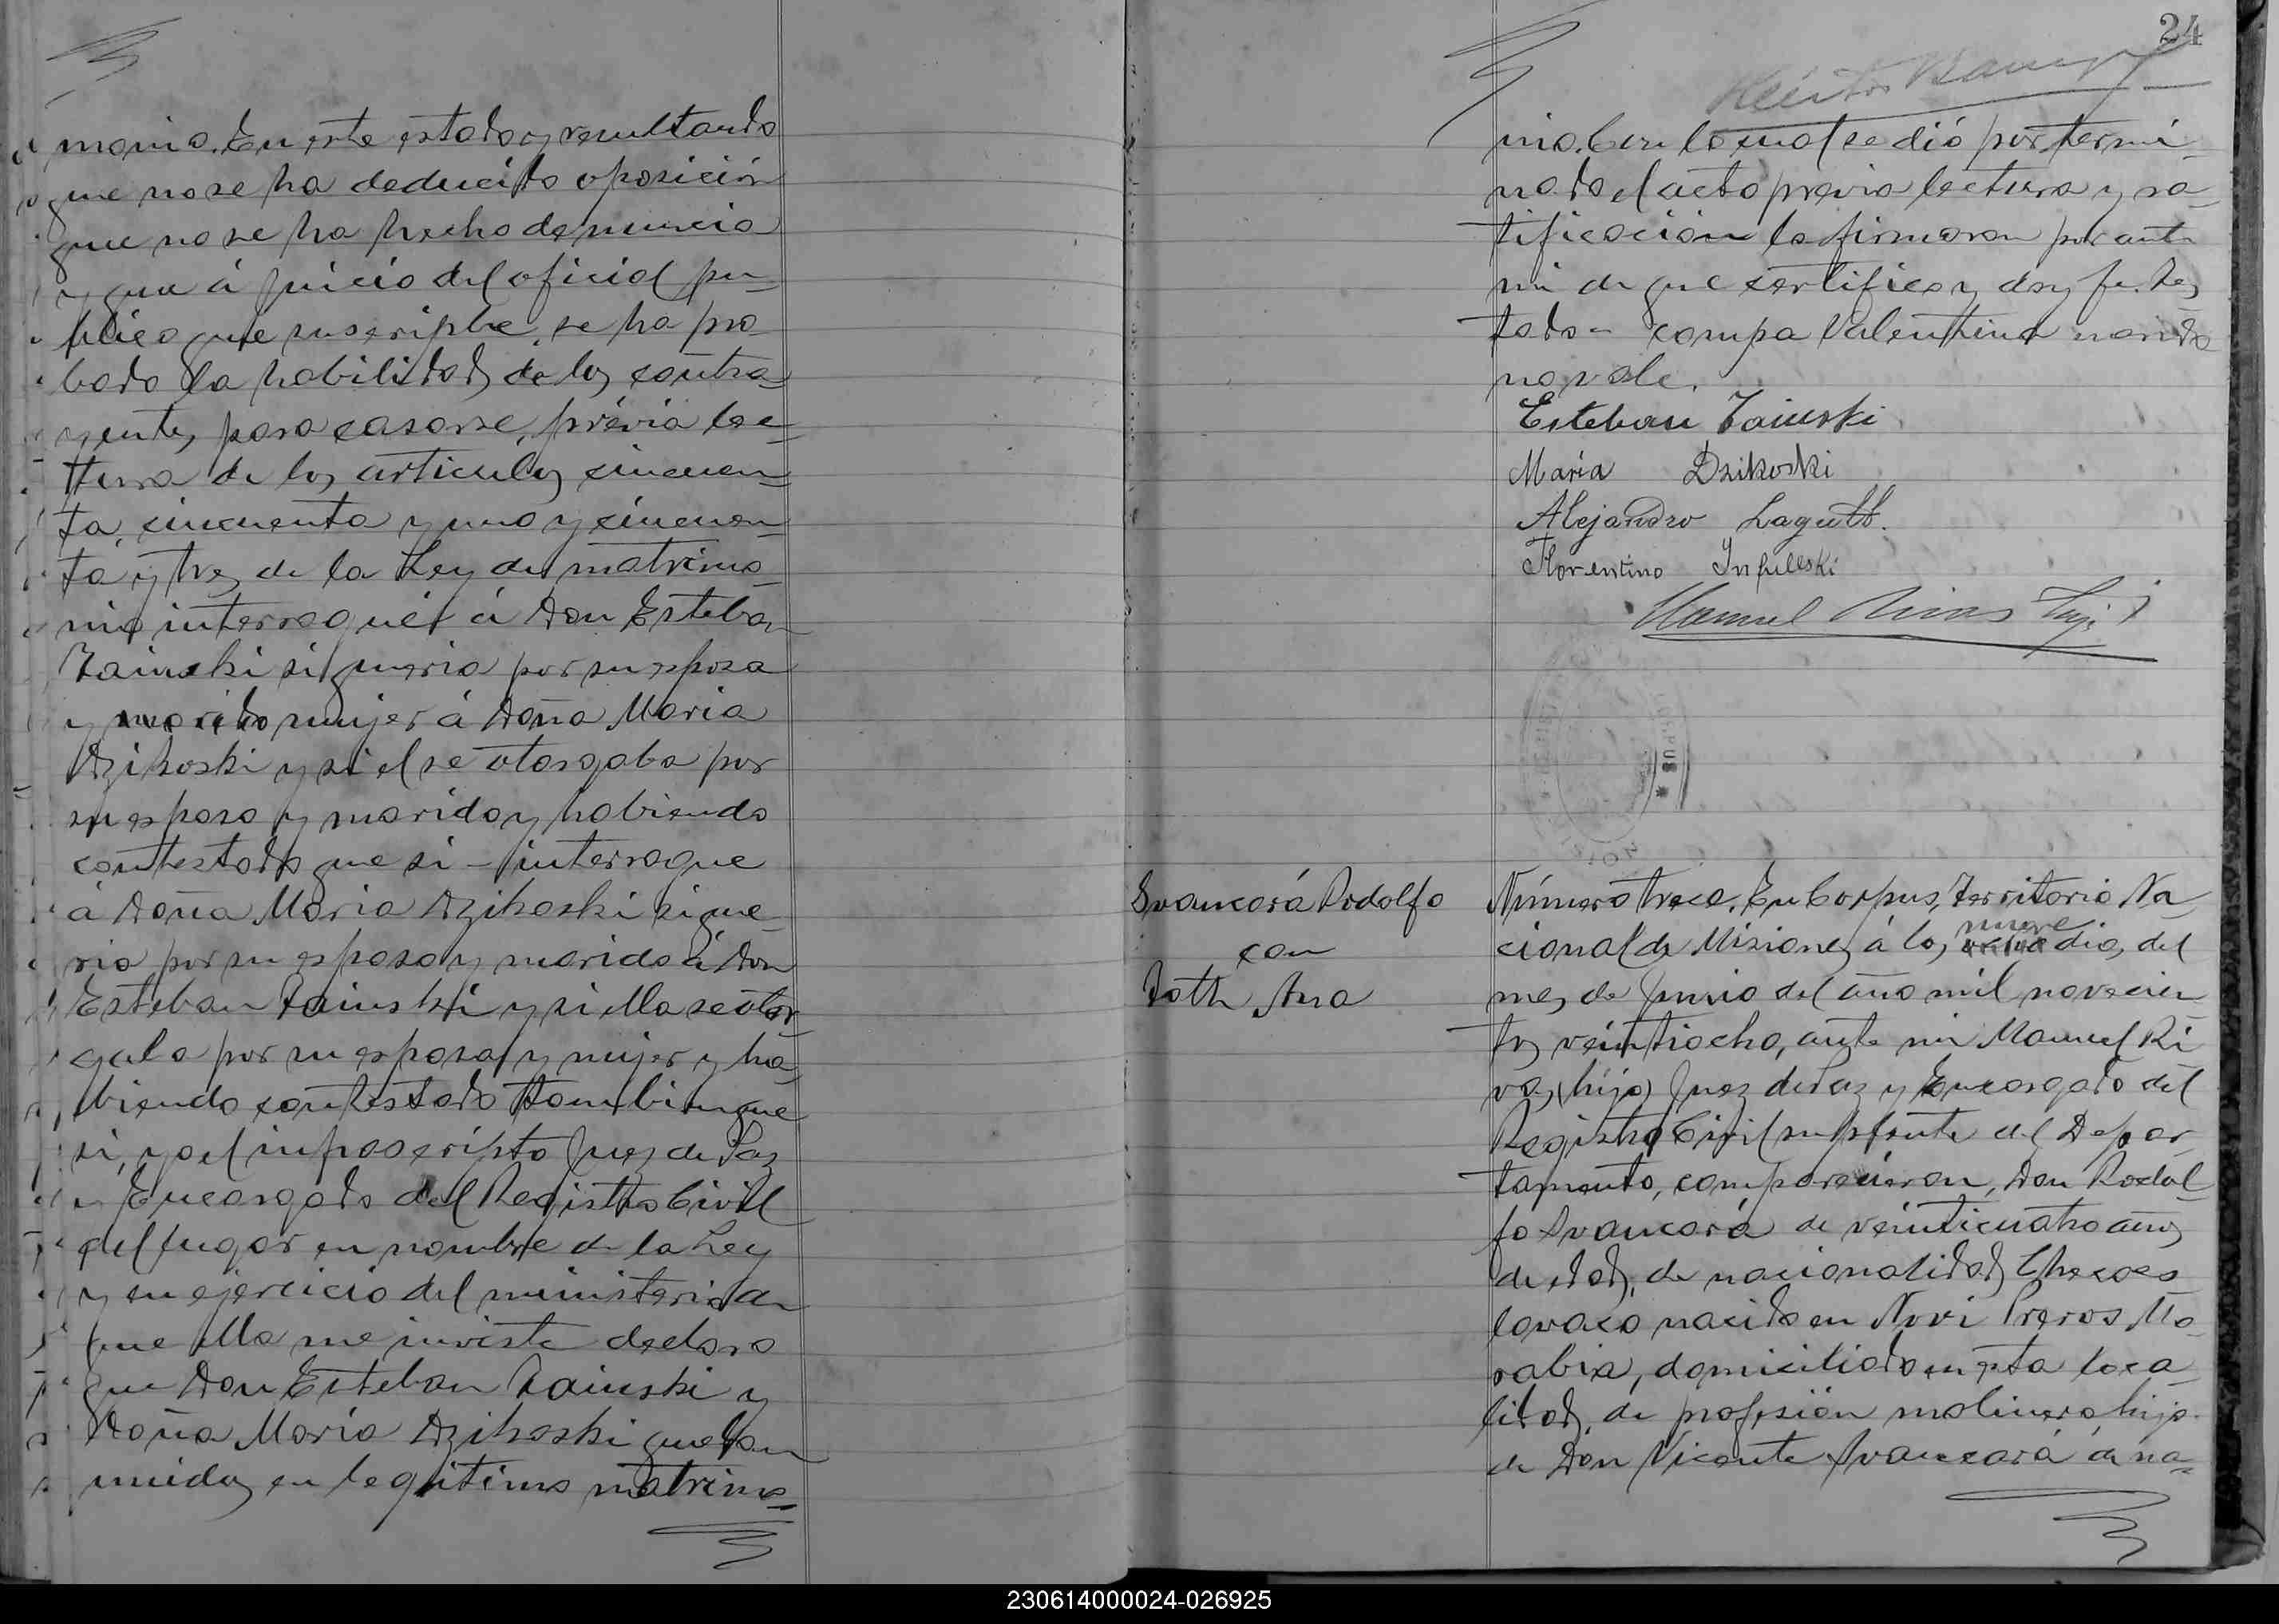 monio. En este estado y resultando
que no se ha deducido oposición
que no se ha hecho denuncia
y que á juicio del oficial pu-
blico que suscripbe, se ha pro
bado la habilidad de los contra-
yentes para casarse, prévia lec-
tura de los articulos cincuen-
ta, cincuenta y uno y cincuen-
ta y tres de la Ley de matrimo-
nio interrogué á Don Esteban
Zaiuski si queria por su esposa
y marido mujer á Doña Maria
Dzikoski y si el se otorgaba por
su esposo y marido y habiendo
contestado que si - interrogue
á Doña Maria Dzikoski si que-
ria por su esposo y marido á Don
Esteban Zaiuski y si ella se otor-
gaba por su esposa y mujer y ha-
biendo contestado tambien que
si, yo el infrascripto Juez de Paz
y Encargado del Registro Civil
del lugar en nombre de la Ley
y en ejercicio del ministerio de
que ella me inviste declaro
que Don Esteban Zaiuski y
Doña Maria Dzikoski quedan
unidos en legitimo matrimo-
24
nio. Con lo cual se dió por termi-
nado el acto prévia lectura y ra-
tificación la firmaron por ante
mi de que certifico y doy fe. Tes
tado - compa Valentina marido
no vale.
Esteban Zaiuski
María Dzikoski
Alejandro Lagutt.
Florentino Infuleski
Manuel Rivas hijo
Svancará Rodolfo
con
Toth Ana
Número trece. En Corpus, Territorio Na-
cional de Misiones á los nueve dias del
mes de Junio del año mil novecien-
tos veintiocho, ante mi Manuel Ri
vas (hijo) Juez de Paz y Encargado del
Registro Civil suplente del Depar-
tamento, comparecieron, Don Rodol-
fo Svancará de veinticuatro años
de edad, de nacionalidad Checoes
lovaco nacido en Novi Preros Mo-
rabia, domiciliado en esta loca-
lidad, de profesión molinero hijo
de Don Vicente Svancará de na-
230614000024-026925